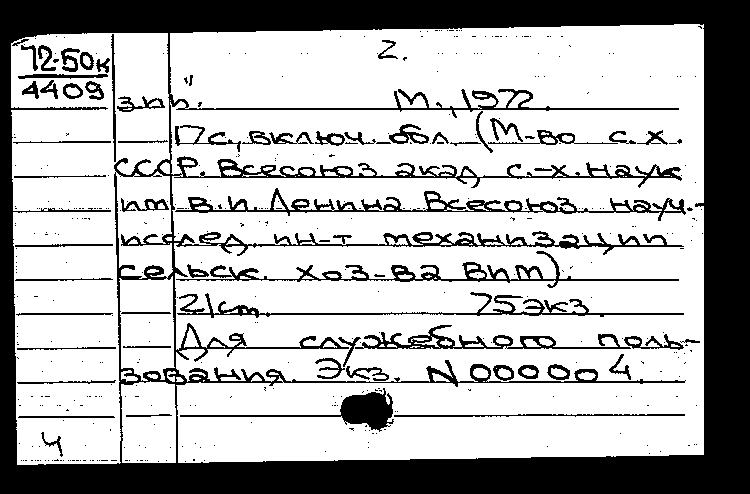 2.
72-50к
4409
зпп." М., 1972.
17с., включ. обл. (М-во с. х.
СССР. Всесоюз акад с.-х. наук
им В.И. Ленина Всесоюз. науч.-
исслед. ин-т механизации
сельск. хоз-ва ВИМ).
2/ст. 75экз.
Для служебного поль-
зования. Экз. N 000004.
4